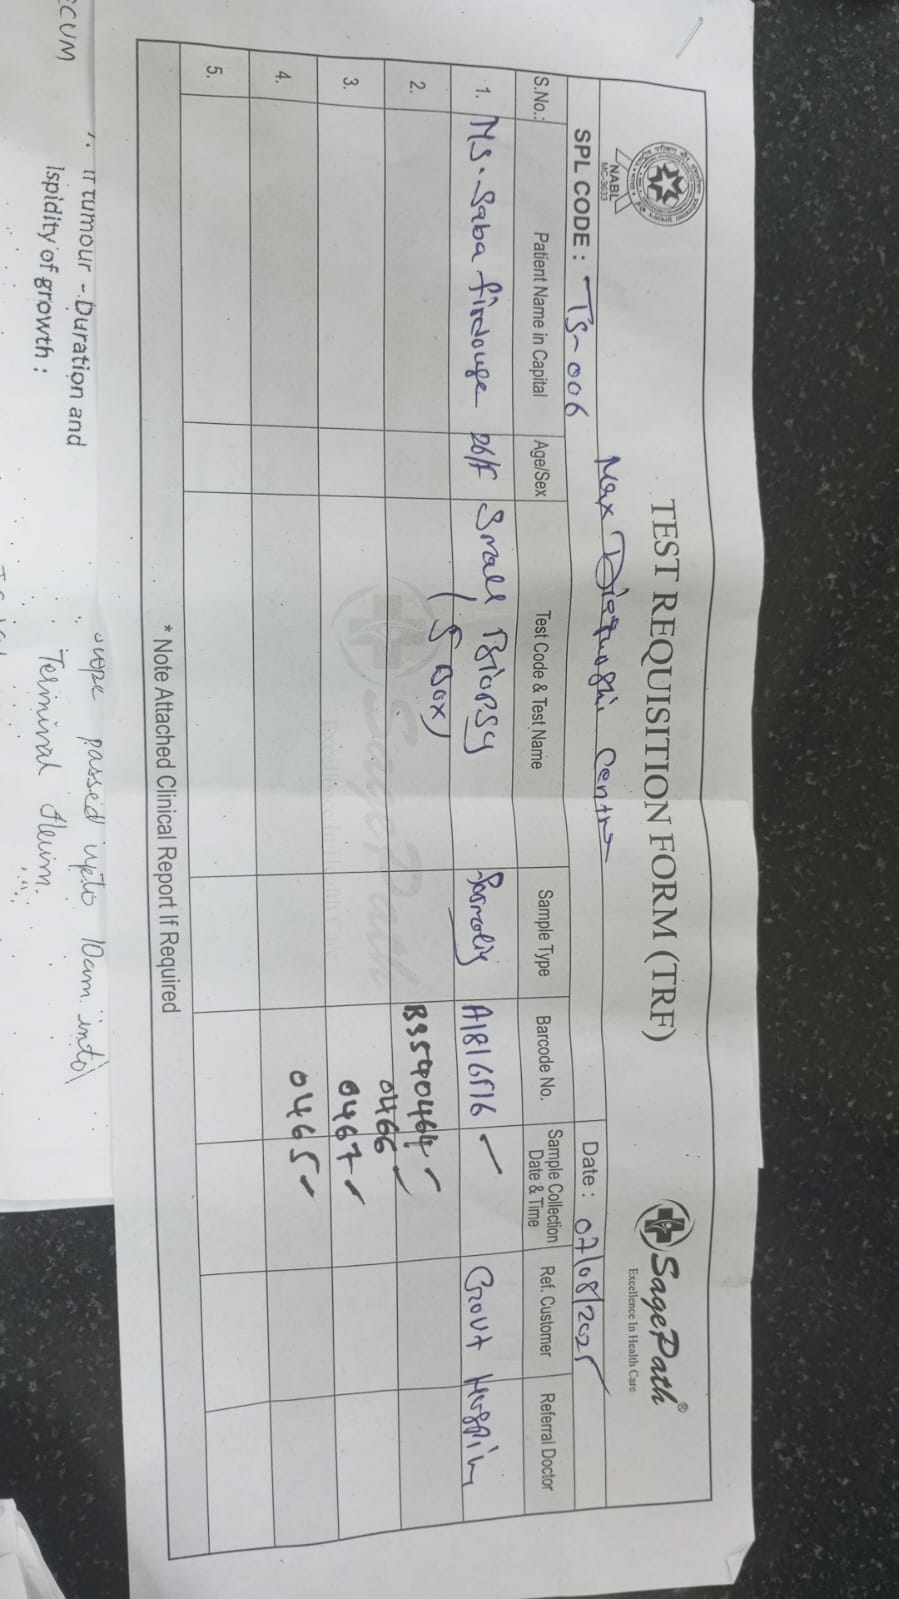 TEST REQUISITION FORM (TRF)
NABL
MC-3633
SagePath®
Excellence In Health Care
Max Diagnostic Centre
SPL CODE : TS-006
Date : 07/08/2025
S.No.: Patient Name in Capital Age/Sex Test Code & Test Name Sample Type Barcode No. Sample Collection Date & Time Ref. Customer Referral Doctor
1. MS. Saba firdouse 26/F Small BIOPSY A1816516 Govt Hospital
(5 Box)
2. B3540464
0466
3. 0467
4. 0465
5.
* Note Attached Clinical Report If Required
tumour - Duration and
passed upto 10cm into
Terminal Ileum.